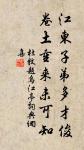 江東子弟多才俊
卷土重來未可知
杜牧題烏江亭詞典網
集